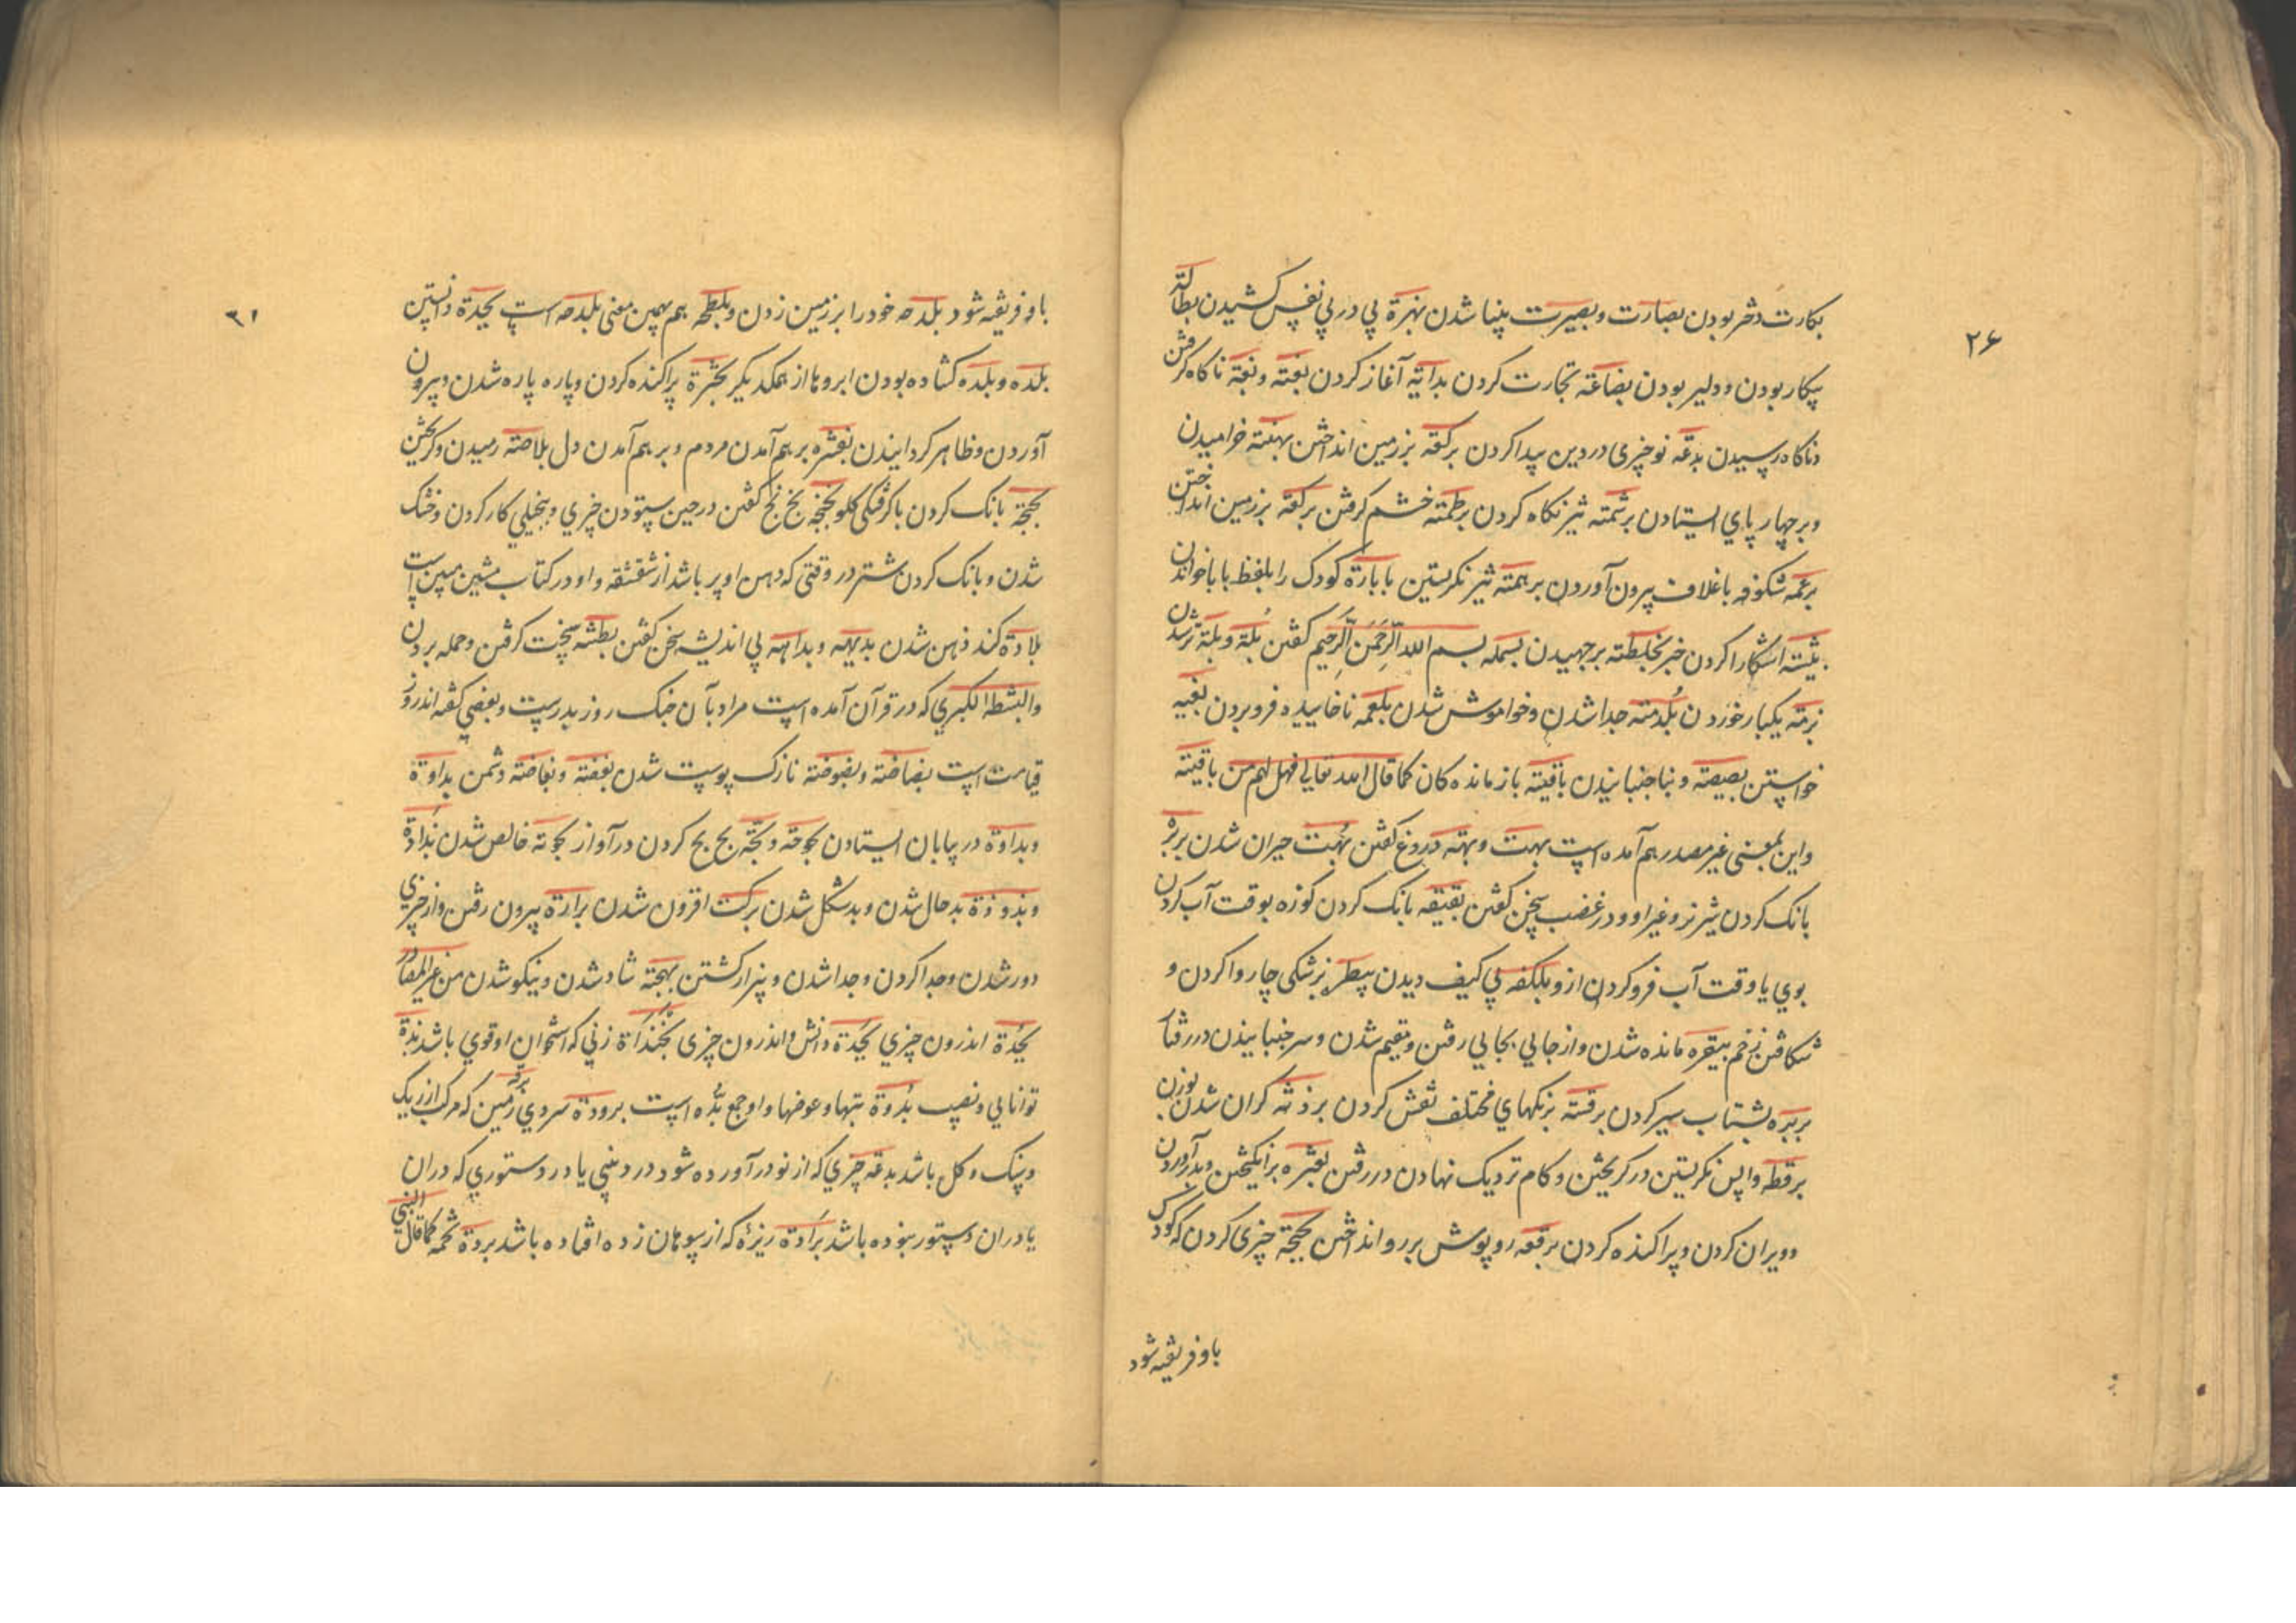 ۲۶
بکارت دختر بودن بصارت و بصیرت بینا شدن بهرة پی در پی نفس کشیدن بطالة
بیکار بودن و دلیر بودن بضاعة تجارت کردن بدایة آغاز کردن بغتة و بغتة ناکاه کرفتن
و ناکاه رسیدن بدعة نو چیزی در دین پیدا کردن برکعة بزمین انداختن بهنسة خرامیدن
و بر چهار پای ایستادن برشمة تیز نکاه کردن برطمة خشم کرفتن برکعة بر زمین انداختن
برعمة شکوفه با غلاف بیرون آوردن برهمة تیز نکریستن بابارة کودک را بلفظ بابا خواندن
آشکارا کردن خبر بخلطة برجهیدن بسمله بسم الله الرحمن الرحیم کفتن بلة و بلة تر شدن
بزمة یکبار خوردن بلدمة جدا شدن و خواموش شدن بلعمه ناخاییده فرو بردن بغیه
خواستن بصبصة دنبا جنبانیدن باقیة باز مانده کان کما قال الله تعالی فهل لهم من باقیة
و این بمعنی غیر مصدر هم آمده است بهت و بهتة دروغ کفتن بهت حیران شدن بربرة
بانک کردن شیر نر و غیر او و در غضب سخن کفتن بقبقه بانک کردن کوزه بوقت آب کردن
بوی یا وقت آب فرو کردن از و بلکفه بی کیف دیدن بیطرة بزشکی چاروا کردن و
شکافتن زخم بیقره مانده شدن و از جایی بجایی رفتن و مقیم شدن و سر جنبانیدن در رفتار
بربره بشتاب سیر کردن برقشة برنکهای مختلف نقش کردن گران شدن بوزن
برقطه واپس نکریستن در کریختن و کام نزدیک نهادن در رفتن بعثره برانکیختن و بدر آوردن
و ویران کردن و پراکنده کردن برقعه روپوش بر رو انداختن بججة چیزی کردن که کودک
باو فریفته شود
باو فریفته شود بلدحه خود را بر زمین زدن و بلطحه هم بهمین معنی بلدحه است بجدة دانستن
بلده و بلده کشاده بودن ابروها از همدیگر بحثرة پراکنده کردن و پاره پاره شدن و بیرون
آوردن و ظاهر کردانیدن بغثره بر هم آمدن مردم و بر هم آمدن دل بلاصة رمیدن و کریختن
بحجة بانک کردن با کرفتکی کلو بخبخة بخ بخ کفتن در حین ستودن چیزی و ببخیلی کار کردن و خنک
شدن و بانک کردن شتر در وقتی که دهن او پر باشد از شقشقه و او در کتاب شین مبین است
بلادة کند ذهن شدن بدیهة و بداهة بی اندیشه سخن کفتن بطشه سخت کرفتن و حمله بردن
و البطشة الکبری که در قرآن آمده است مراد بآن جنک روز بدر است و بعضی کفته اند روز
قیامت است بضاضة و بضوضة نازک پوست شدن بغضة و بغاضة دشمن بداوة
و بداوة در بیابان ایستادن بحوحة و بحة بح بح کردن در آواز بحوتة خالص شدن بذاذة
و بذوذة بد حال شدن و بد شکل شدن برکت افزون شدن برارة بیرون رفتن و از چیزی
دور شدن و جدا کردن و جدا شدن و بیزار کشتن بهجة شاد شدن و نیکو شدن من غیر المصادر
بجدة اندرون چیزی بجدة دانش و اندرون چیزی بخنداة زنی که استخوان او قوی باشد بدة
توانایی و نصیب بددة بتها و عوضها و او جمع بده است برودة سردی برقه زمین که مرکب از ریک
و سنک و کل باشد بدعة چیزی که از نو در آورده شود در دینی یا در دستوری که در آن
یا در آن دستور نبوده باشد برادة ریزه که از سوهان زده افتاده باشد بردة تخمه کما قال النبی